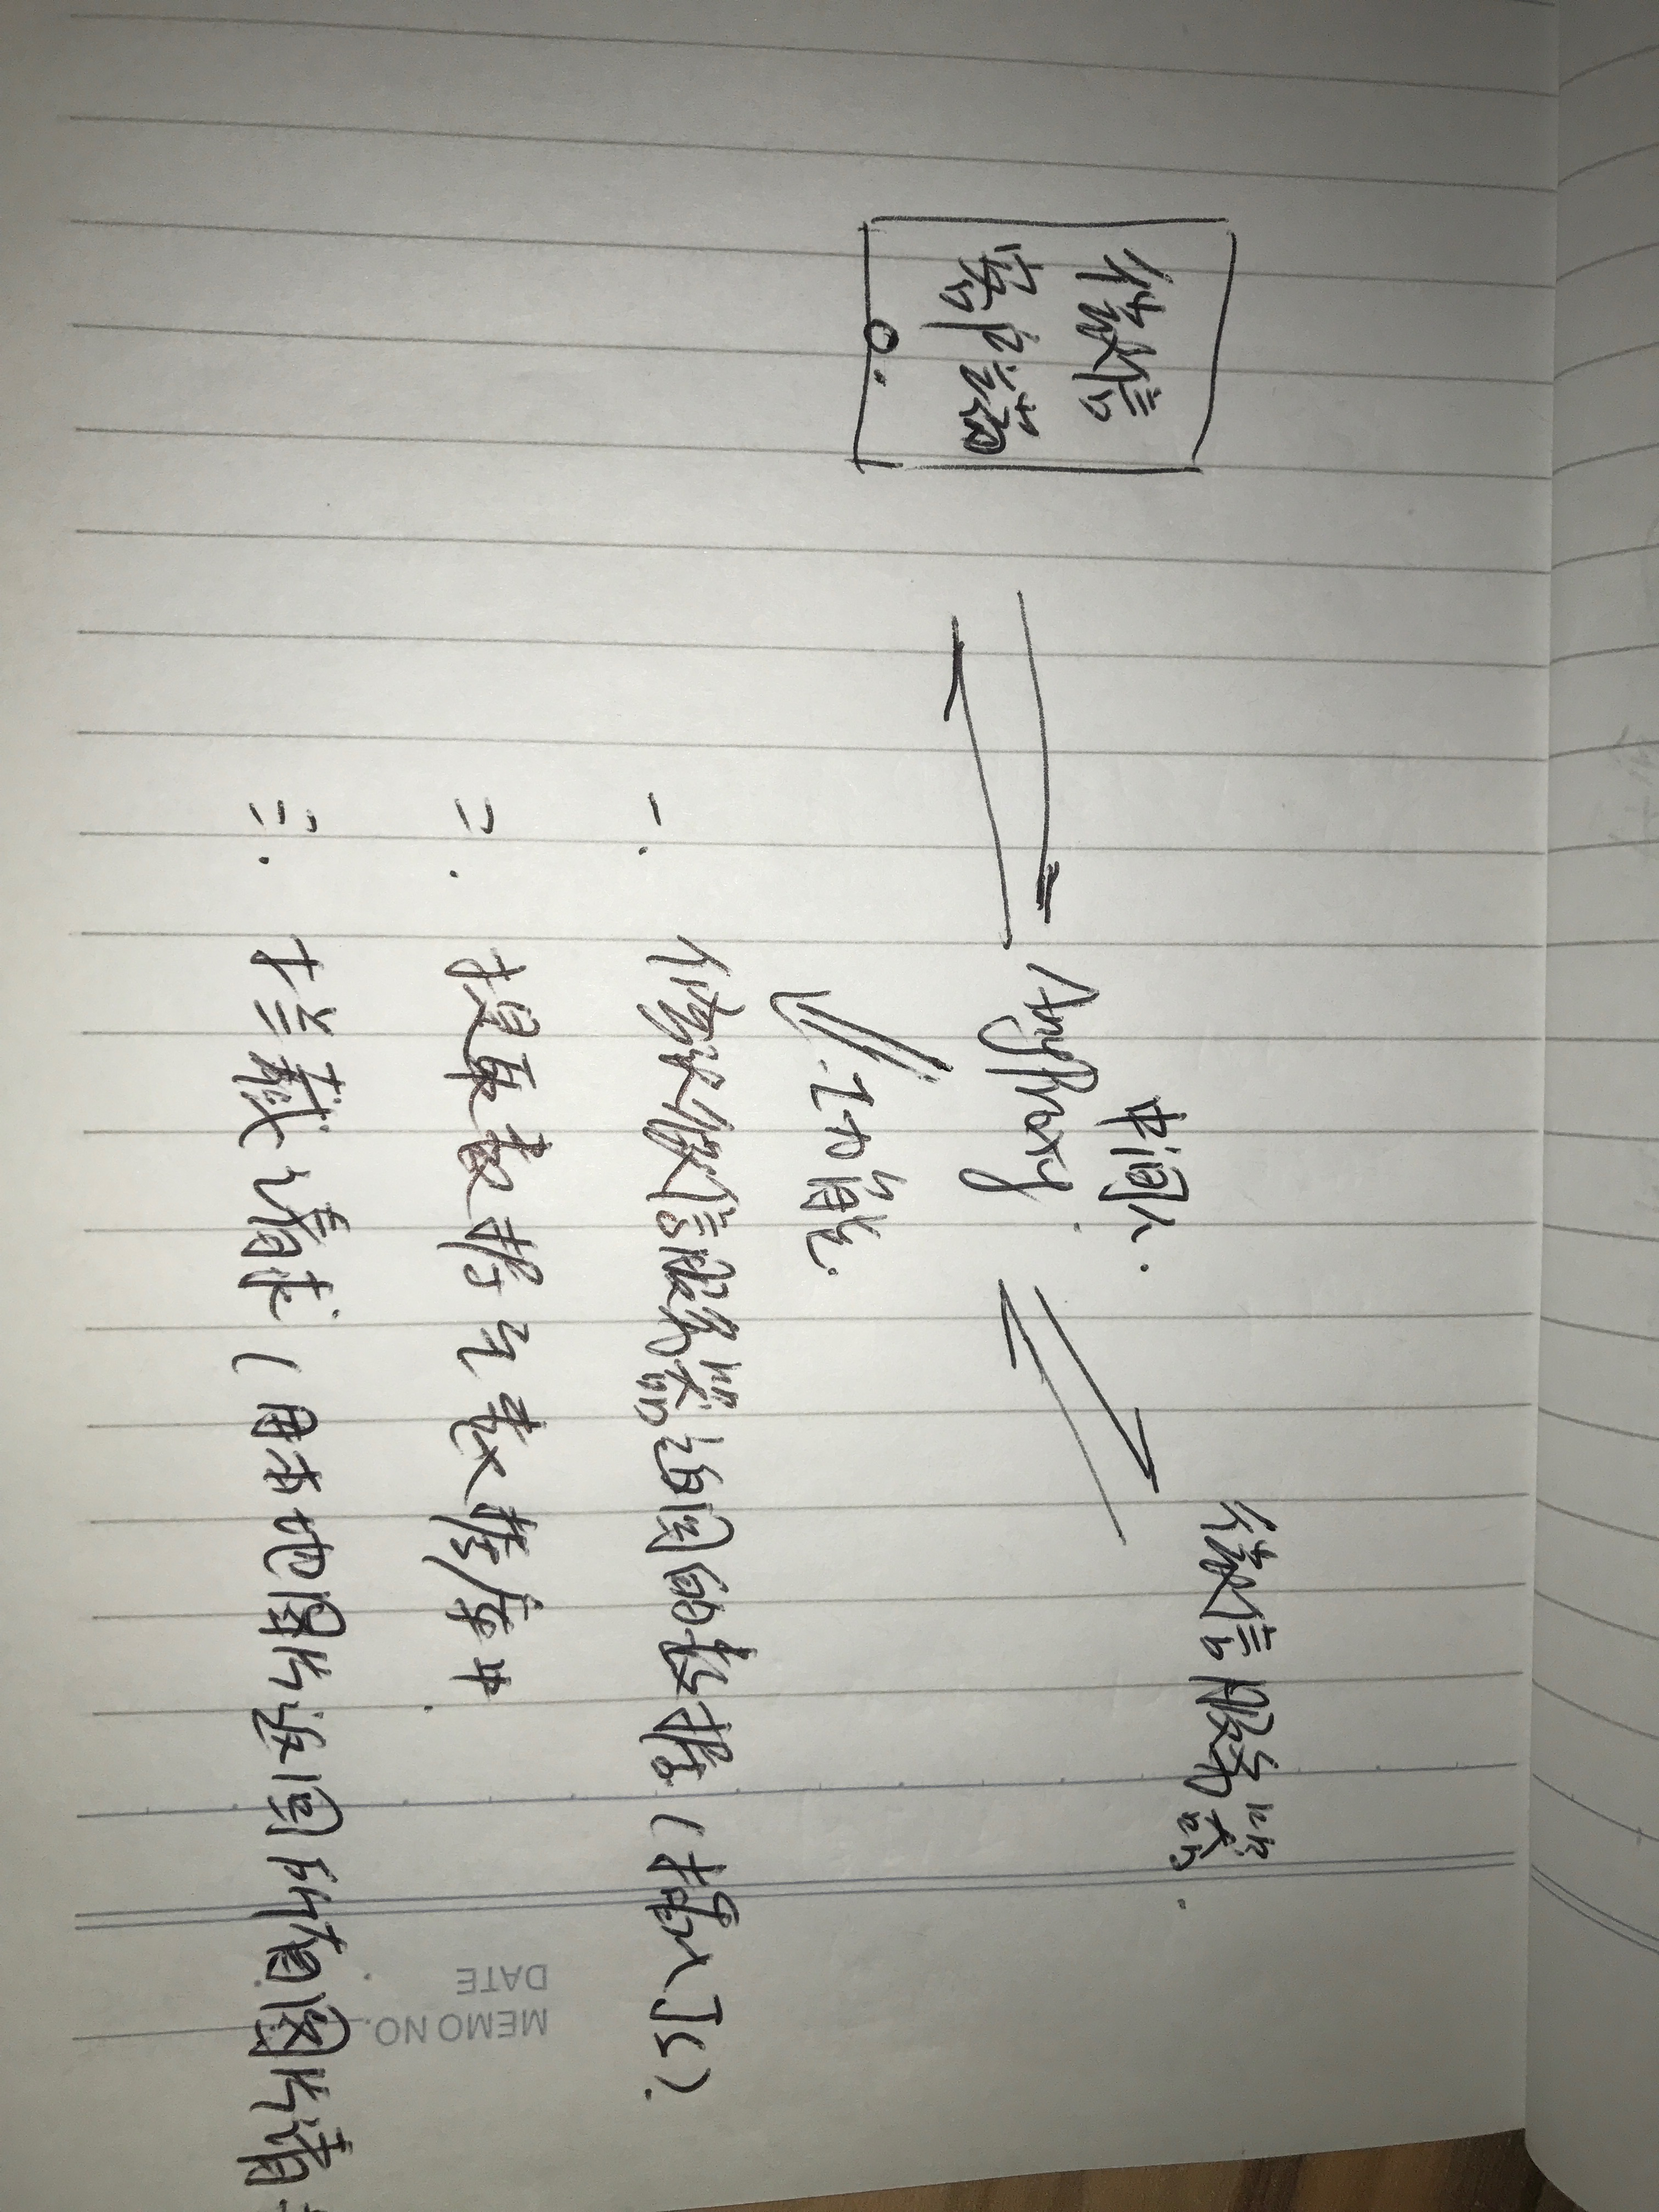 微信
客户端
中间人.
AnyProxy.
微信服务器.
功能.
一. 修改微信服务器返回的数据(插入JS).
二. 提取数据与数据库中.
三. 拦截请求(用本地图片返回所有图片请
MEMO NO.
DATE